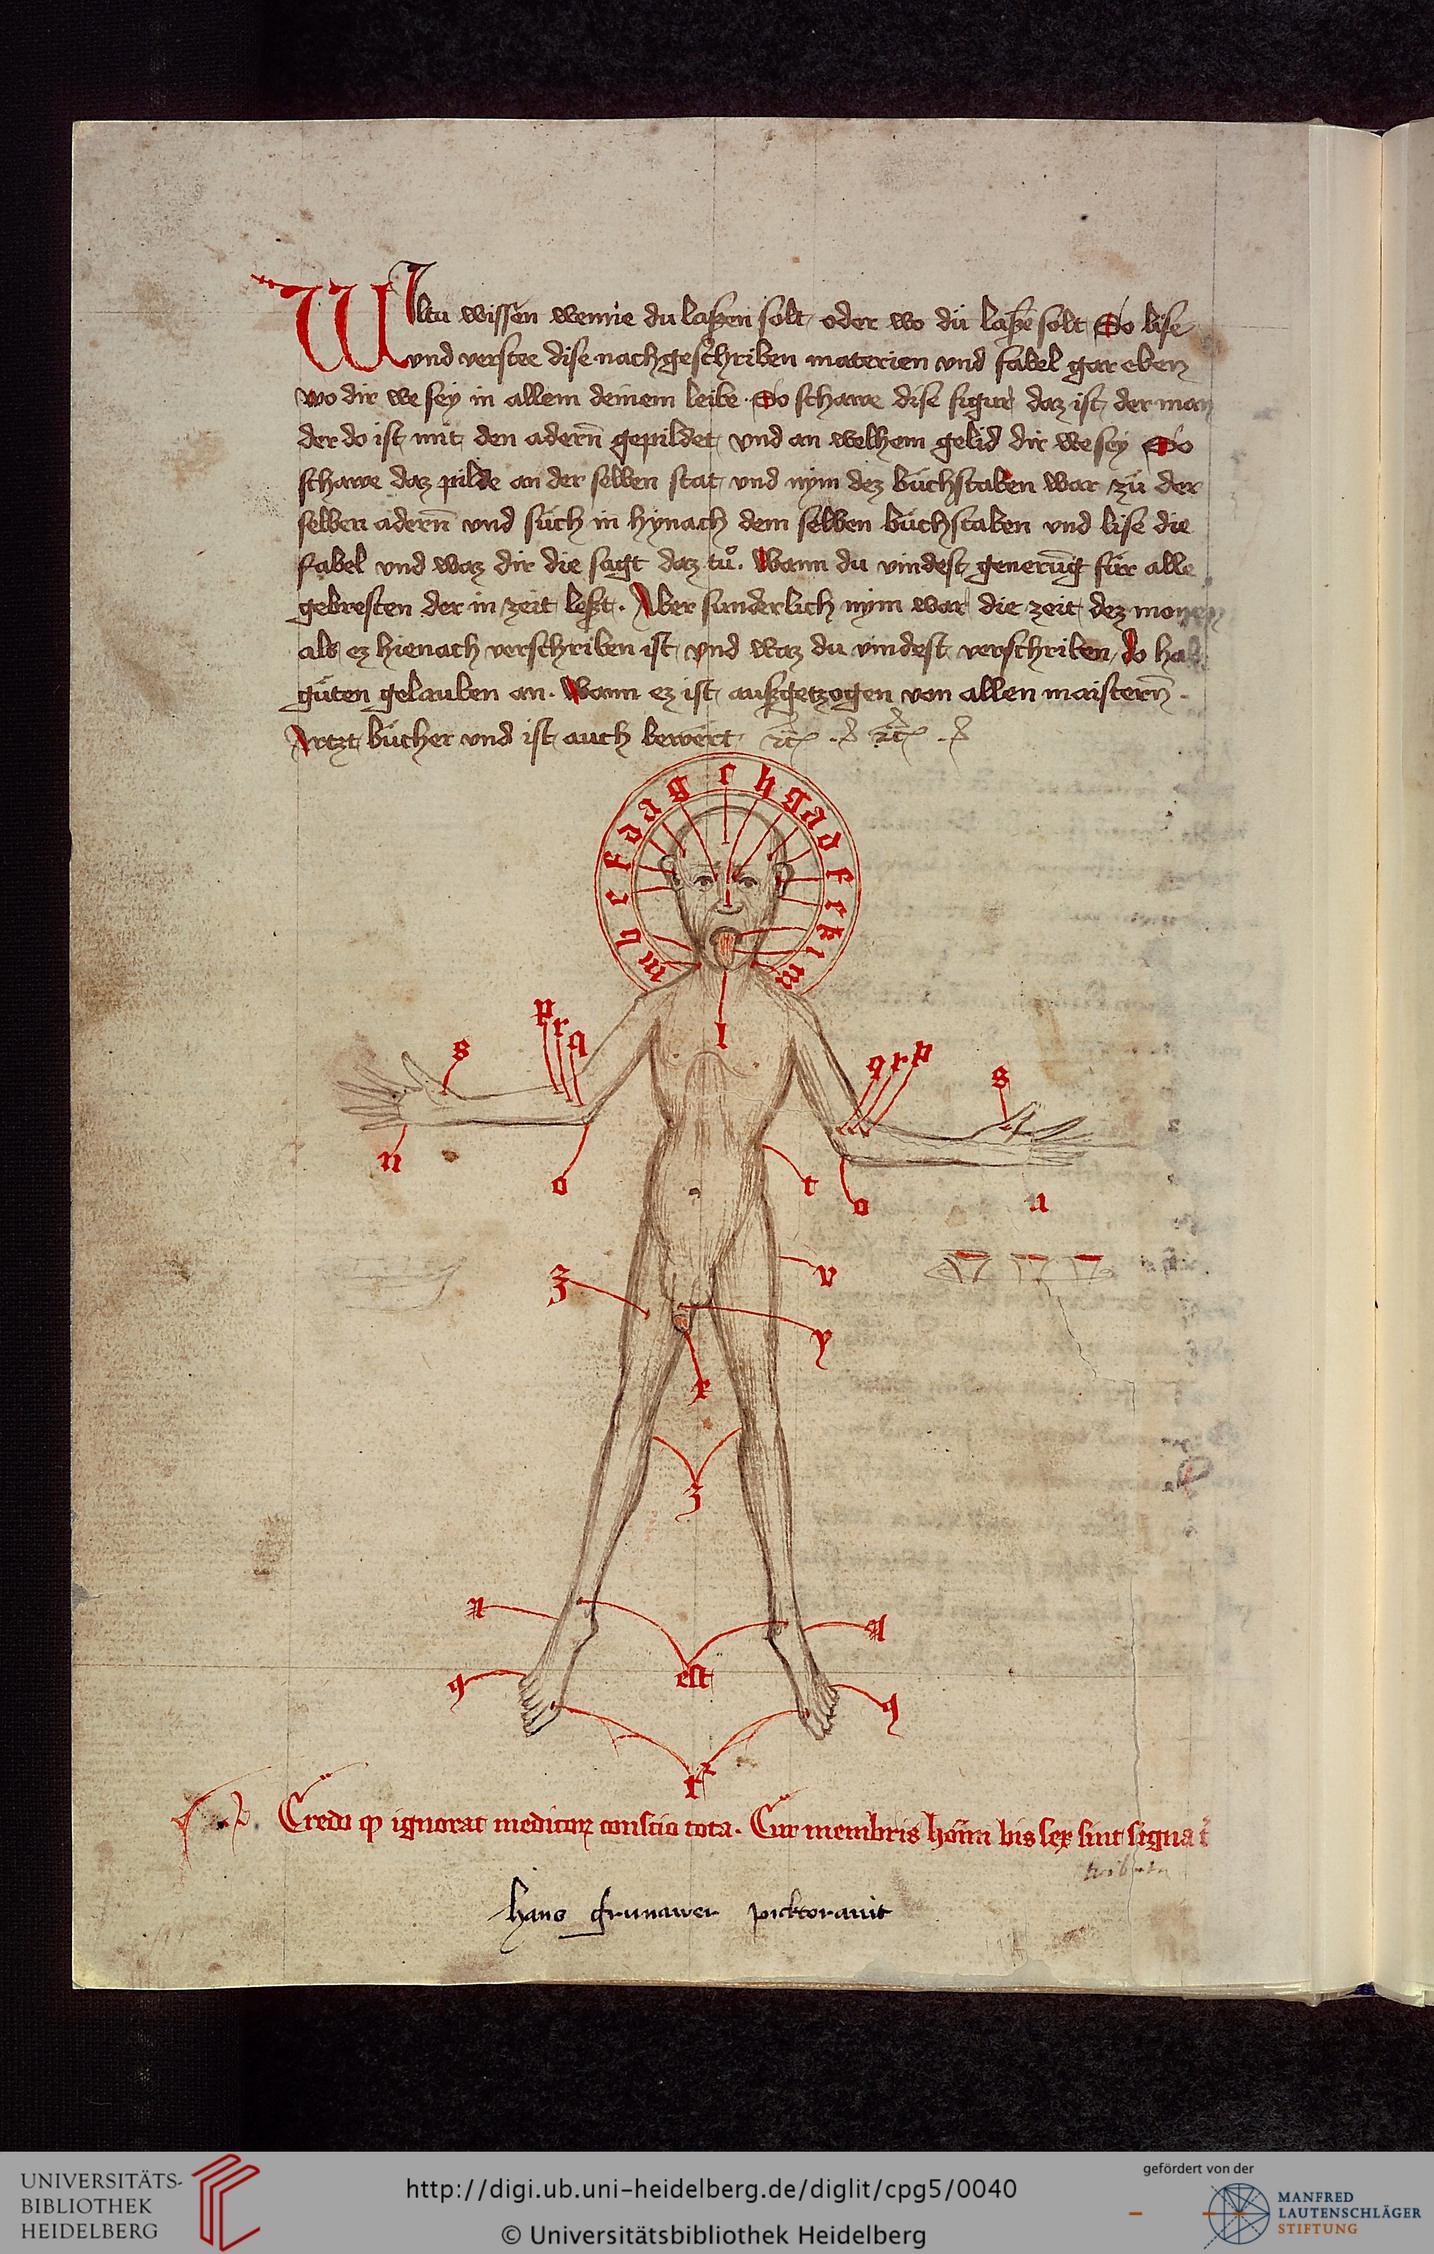 Wiltu wissen wenne du laßen solt oder wo du laßē solt So lise
vnd verstee dise nachgeschriben materien vnd fabel gar eben
wo dir we sey in allem deinem leibe · So schawe dise figur daz ist der man
der do ist mit den adern̄ gepildet vnd an welhem gelid dir we sey So
schawe daz pilde an der selben stat vnd nym dez buchstaben war zu der
selben adern̄ vnd such in hynach dem selben buchstaben vnd lise die
fabel vnd waz dir die sagt daz tuͦ. Wann du vindest generūg für alle
gebresten der in zeit leßt. Aber sunderlich nym war die zeit dez monen
als ez hienach verschriben ist vnd waz du vindest verschriben, So hab
guten gelauben an. Wann ez ist außgetzogen von allen maistern̄ ·
Artzt bücher vnd ist auch bewert
m b c f d a g c h g a d f c k i m
l
p r q
s
n
o
q r p
s
o
n
t
v
z
y
x
z
est
q
q
Credo qp ignorat medicorꝝ conscio tota · Cur membris hoīm bis sex sint signa t̄
hans grunawer picktorauit
UNIVERSITÄTS-
BIBLIOTHEK
HEIDELBERG
http://digi.ub.uni-heidelberg.de/diglit/cpg5/0040
© Universitätsbibliothek Heidelberg
gefördert von der
MANFRED
LAUTENSCHLÄGER
STIFTUNG